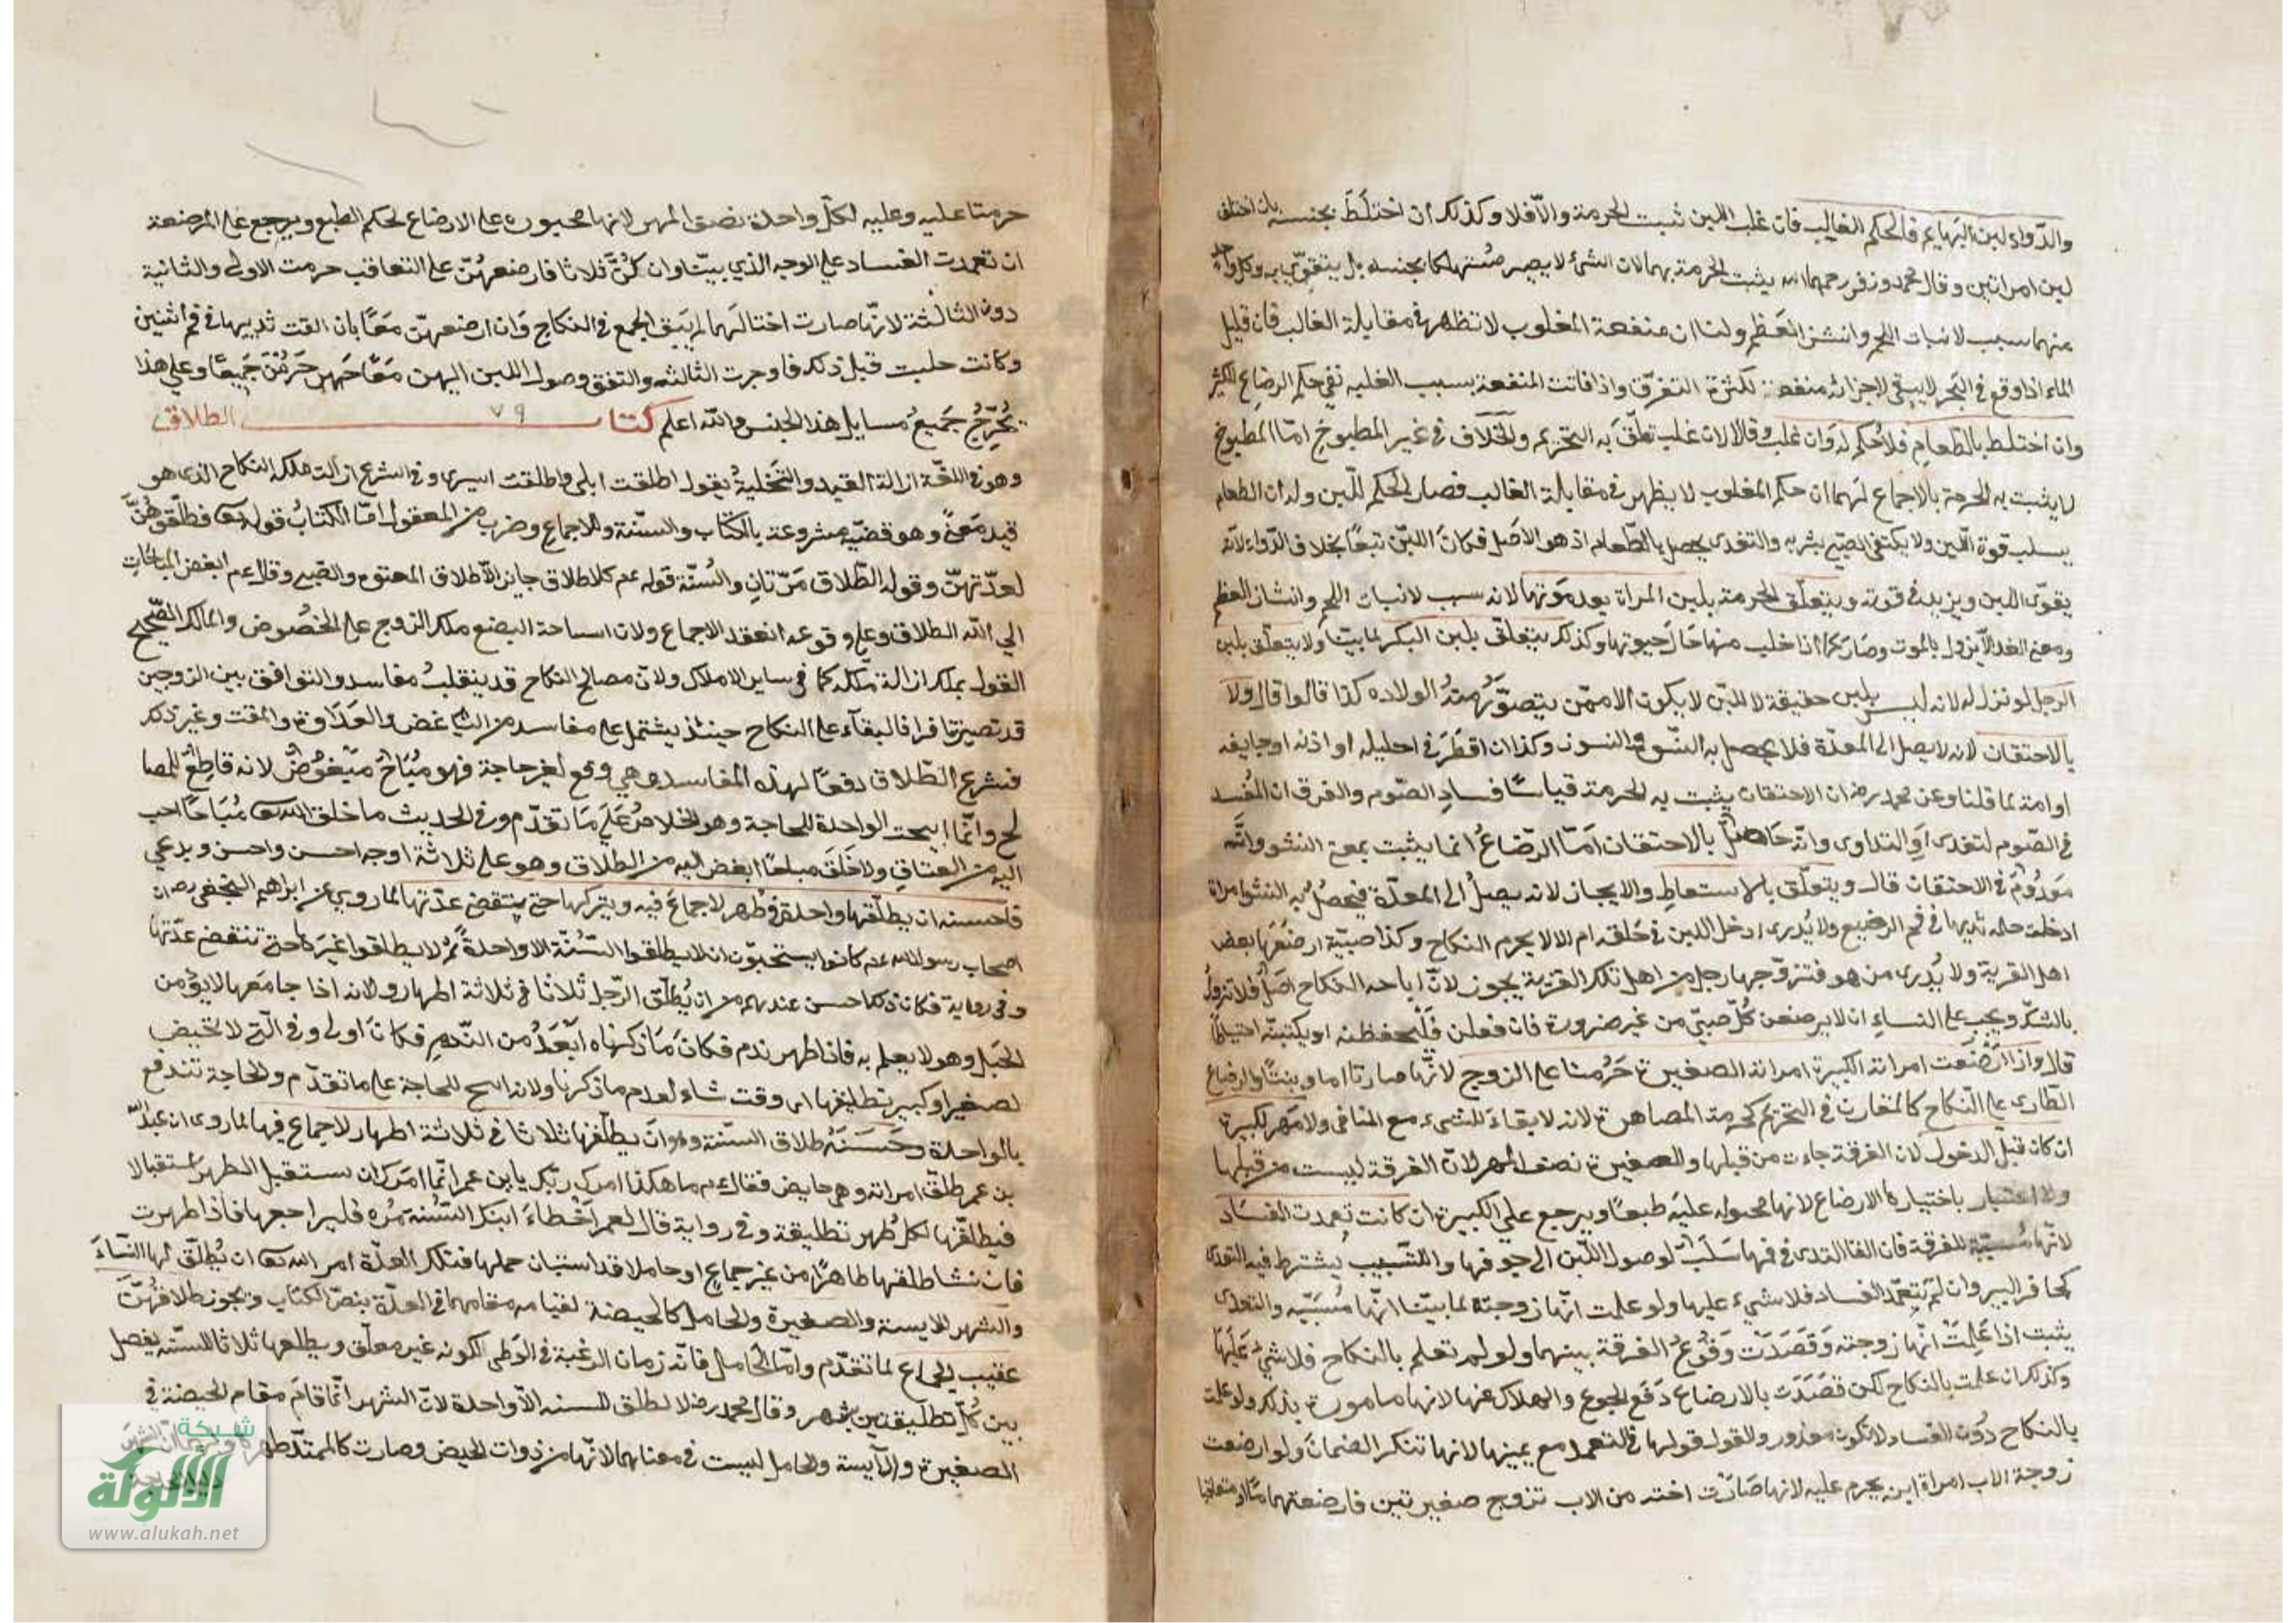 والدواء ولبن البهايم فالحكم الغالب فان غلب اللبن ثبت الحرمة والّا فلا وكذلك ان اختلَطَ بجنسه بان اختلط
لبن امراتين وقال محمد وزفر رحمهما الله يثبت الحرمة بهما لان الشئ لا يصير مُستهلكا بجنسه بل يتقوّى به وكل واحد
منهما سبب لانبات اللحم وانشز العَظم ولنا ان منفعة المغلوب لا تظهر في مقابلة الغالب فان قليل
الماء اذا وقع في البَحر لا يبقى لاجزائه منفعة لكثرة التفرّق واذا فاتت المنفعة بسبب الغلبه نفي حكم الرضاع للكثر
وان اختلط بالطعام فلا حُكم له وَان غلب وقالا لان غلب تعلّقَ به التحريم والخلاف في غير المطبوخ امّا المطبوخ
لا يثبت به الحرمة بالاجماع لهما ان حكم المغلوب لا يظهر في مقابلة الغالب فصار الحكم للّبن وله ان الطعام
يسلب قوة اللبن ولا يكتفى الصبي بشربه والتغدى يحصل بالطّعام اذ هو الاصل فكان اللبن تبعًا بخلاف الدّواء لانّه
يقوّى اللبن ويزيد في قوته ويتعلّق الحرمة بلبن المراة بعد مَوتها لانه سبب لانبات اللحم وانشاز العظم
ومعنى الغدا لا يزول بالموت وصَار كما اذا حلب منها حَال حَيوتها وكذلك يتعلّق بلبن البكر لما بيّنا ولا يتعلّق بلبن
الرجل لو نزل له لانه ليس بلبن حقيقة لا للبن لا يكون الا ممّن يتصوَّر منهُ الولاده كذا قالوا قال ولا
بالاحتقان لانه لا يصل الى المعدة فلا يحصل به النشوّ والنسوز وكذا ان اقطَرَ في احليله او اذنه او جايفه
او امة لما قلنا وعن محمد رضه ان الاحتقان يثبت به الحرمة قياسًا فسادِ الصّوم والفرق ان المُفسد
في الصّوم لتغدى اوِ التداوى وانّه حَاصلٌ بالاحتقان امَا الرّضاعُ انما يثبت بمعنى النشو وانّه
مَعدُومٌ في الاحتقان قال ويتعلّق بالاستعاطِ والايجاز لانه يصلُ الى المعدّة فيحصُل به النشوا مراة
ادخلت حلمة ثديها في فم الرضيع ولا يُدرى ادخل اللبن في حَلقه ام لا لا يحرم النكاح وكذا صبيّة ارضعَها بعض
اهل القرية ولا يُدرى من هو فتزوّجها رجل من اهل تلك القرية يجوز لانّ اباحه النكاح اصلٌ فلا تزولُ
بالشكّ ويجب على النساءِ ان لا يرضعن كُلّ صَبيّ من غير ضرورة فان فعلن فَلْيحفظنه او يكتبنه احتياطا
قال واذا ارضَعَت امراته الكبيرة امراته الصغيرة حَرُمتا على الزوج لانّها صارتا اما وبنتًا والرضاع
الطّارى على النّكاح كالمقارن في التحريم كحرمة المصاهرة لانه لا بقاءَ للشىء مع المنافى ولا مَهر لكبيرة
ان كان قبل الدخول لان الفرقة جاءت من قبلها وللصغيرة نصف المهر لانّ الفرقة ليست من قبلها
ولا اعتبار باختيارها الارضاع لانها مجبوله عليَه طبعًا ويرجع على الكبيرة ان كانت تعمدت الفسَاد
لانّها مُسببّة للفرقة فان القا الثدى في فمها سَبَب لوصول اللّبن الى جوفها والتسبيب يُشترط فيه التعدى
كحافر البير وان لم تتعمّد الفساد فلا شىء عليها ولو علمت انّها زوجته لما بيّنا انّها مُسَببّه والتعدى
يثبت اذا عَلِمَتْ انّها زوجته وَقصَدَتْ وَقُوعُ الفرقة بينهما ولو لم تعلم بالنكاح فلا شئ عَليَها
وكذلك ان علمت بالنكاح لكن قصَدَت بالارضاع دَفع الجوع والهلاك عنها لانها مامورة بذلك ولو علمت
بالنكاح دُون الفساد لا تكون معذور والقول قولها في التعمد مع يمينها لانها تنكر الضمان وَلو ارضعت
زوجة الاب امراة ابنه يحرم عليه لانها صَارَت اخته من الاب تزوج صغيرتين فارضعتهما معًا او متعاقبا
حرمتا عليه وعليه لكلّ واحدة نصف المهر لانها مجبورة على الارضاع لحكم الطبع ويرجع على المرضعة
ان تعمدت الفساد على الوجه الذي بيّنا وان كُنَّ ثلاثا فارضعهُنّ على التعاقب حرمت الاولى والثانية
دون الثالثة لانّها صارت اختا لهما لم يَبق الجمع في النكاح وَان ارضعهنّ مَعًا بان القت ثدييها في فم اثنين
وكانت حلبت قبل ذلك فاوجرت الثالثه واتفق وصول اللبن اليهن مَعًا حَرمن جَميعًا وعلى هذا
تُخرّجُ جَميعُ مسايل هذا الجنس والله اعلم كتاب الطلاق ٧٩
وهو في اللغّة ازالة القيد والتَّخليةُ يقول اطلقت ابلى واطلقت اسيرى وفي الشرع ازالت ملك النكاح الذى هو
قيد مَعنىً وهو قضيّه مشروعة بالكتَاب والسنّة والاجماع وضرب من المعقول امّا الكتابُ قوله تعا فطلّقوهُنّ
لعدّتهنّ وقوله الطّلاق مَرّتانِ والسُنّة قوله عم كل طلاق جايز الّا طلاق المعتوه والصبى وقال عم ابغض المباحات
الي الله الطلاق وعلى وقوعه انعقد الاجماع ولان استباحة البضع ملك الزوج على الخصُوص والمالك الصّحيح
القول يملك ازالة ملكه كما في ساير الاملاك ولانّ مصالح النكاح قد ينقلبُ مفاسد والتوافق بين الزوجين
قد تصير تنافرا فالبقاء على النكاح حينئذ يشتمل على مفاسد من التباغض والعَدَاوة والمقت وغير ذلك
فشرع الطّلاق دفعًا لهذه المفاسد ومتى وقع لغير حاجة فهو مُبَاحٌ مبغُوضٌ لانه قاطِعٌ للمصا
لح وانّما ابيحت الواحدة للحاجة وهو الخلاص عَلَى مَا تقدّم وفي الحديث ما خلق الله تعا مُبَاحًا احب
اليه من العتاقِ ولا خَلَقَ مباحًا ابغض اليه من الطلاق وهو على ثلاثة اوجه احسن واحسن وبدعي
فاحسنه ان يطلّقها واحدة في طُهر لا جماعَ فيه ويتركها حتى ينقضى عدّتها لما روي عن ابراهيم النخعى رضه ان
اصحاب رسول الله عم كانوا يستحبّون ان لا يطلقوا السُّنّة الا واحدةً ثم لا يطلقوا غيرَ ذلك حتى تنقضى عدّتها
وفي رواية فكان ذلك احسن عندهم من ان يُطلّق الرّجل ثلاثا في ثلاثة اطهار ولانه اذا جامَعها لا يؤمن
الحَبَل وهو لا يعلم به فاذا ظهر ندم فكانَ مَا ذكرناه ابعَدُ من النّدم فكان اولى وفي الّتى لا تحيض
لصغير او كبير تطليقها اى وقت شاء لعدم ما ذكرنا ولانه ابيح للحاجة على ما تقدّم والحاجة تندفع
بالواحدة وحَسَنهُ طلاق السنّة وهو انَ يطلّقها ثلاثا في ثلاثة اطهار لا جماع فيها لما روى ان عبد الله
بن عمر طلّق امراته وهى حايض فقال عم ما هكذا امرك ربّك يا بن عمر انّما امرَك ان تستقبل الطهر استقبالا
فيطلقّها لكل طُهر تطليقة وفي رواية قال لعمر اخطاءَ ابنك السُّنة مُرْه فليراجعها فاذا طهرت
فان نشا طلقها طاهرًا من غير جماعٍ او حاملا قد استبان حملها فتلك العدّة امر الله تعا ان يُطلّق لها النّساءَ
والشهر للايسة والصغيرة والحامل كالحيضة لقيامه مقامهما في العدّة بنصّ الكتاب ويجوز طلاقهُنّ
عقيب الجماع لما تقدّم وامّا الحَامل فانّه زمان الرغبة في الوَطى لكونه غير معلّق ويطلقها ثلاثا للسنّه يفصل
بين كُلّ تطليقتين بشهر وقال محمد رضه لا تطلق للسنه الّا واحدة لانّ الشهر انّما قامَ مقام الحيضة في
الصغيرة والآيسة والحامل ليست في معناهما لانّها من ذوات الحيض وصارت كالممتدّ طهرها
شبكة
الألوكة
www.alukah.net